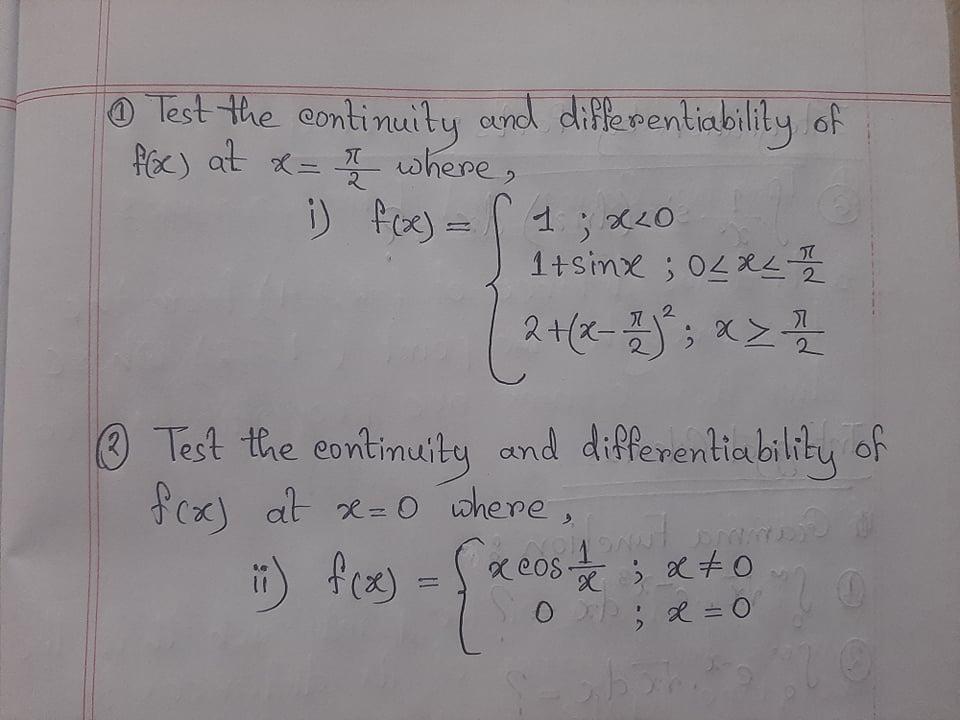 ① Test the continuity and differentiability of
f(x) at x = π/2 where,
i) f(x) = { 1 ; x<0
1+sinx ; 0≤x≤ π/2
2+(x-π/2)² ; x ≥ π/2
② Test the continuity and differentiability of
f(x) at x=0 where,
ii) f(x) = { x cos 1/x ; x ≠ 0
0 ; x = 0